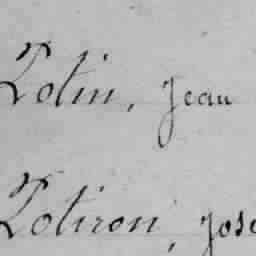 Potin, Jean
Potiron, Jose